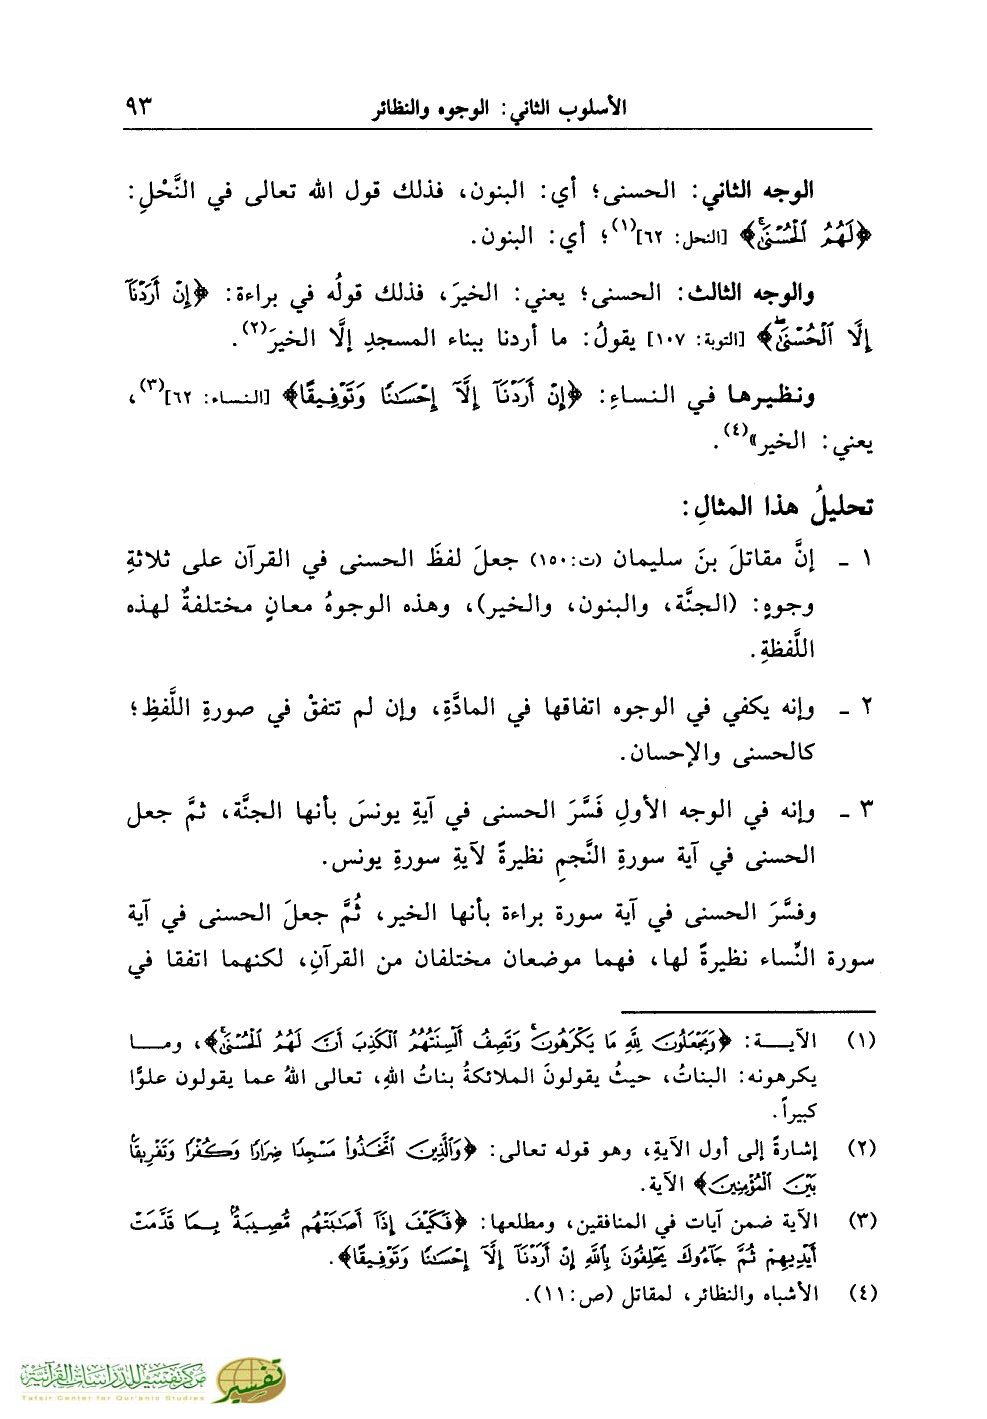 الأسلوب الثاني: الوجوه والنظائر ٩٣
الوجه الثاني: الحسنى؛ أي: البنون، فذلك قول الله تعالى في النَّحْلِ:
﴿لَهُمُ ٱلْحُسْنَىٰ﴾ [النحل: ٦٢](١)؛ أي: البنون.
والوجه الثالث: الحسنى؛ يعني: الخيرَ، فذلك قولُه في براءة: ﴿إِنْ أَرَدْنَآ
إِلَّا ٱلْحُسْنَىٰ﴾ [التوبة: ١٠٧] يقولُ: ما أردنا ببناء المسجدِ إلَّا الخيرَ(٢).
ونظيرها في النساءِ: ﴿إِنْ أَرَدْنَآ إِلَّآ إِحْسَٰنًا وَتَوْفِيقًا﴾ [النساء: ٦٢](٣)،
يعني: الخير»(٤).
تحليلُ هذا المثالِ:
١ ـ إنَّ مقاتلَ بنَ سليمان (ت:١٥٠) جعلَ لفظَ الحسنى في القرآن على ثلاثةِ
وجوهٍ: (الجنَّة، والبنون، والخير)، وهذه الوجوهُ معانٍ مختلفةٌ لهذه
اللَّفظةِ.
٢ ـ وإنه يكفي في الوجوه اتفاقها في المادَّةِ، وإن لم تتفقْ في صورةِ اللَّفظِ؛
كالحسنى والإحسان.
٣ ـ وإنه في الوجه الأولِ فَسَّرَ الحسنى في آيةِ يونسَ بأنها الجنَّة، ثمَّ جعل
الحسنى في آية سورةِ النَّجمِ نظيرةً لآيةِ سورةِ يونس.
وفسَّرَ الحسنى في آية سورة براءة بأنها الخير، ثُمَّ جعلَ الحسنى في آية
سورة النِّساء نظيرةً لها، فهما موضعان مختلفان من القرآنِ، لكنهما اتفقا في
(١) الآيـــة: ﴿وَيَجْعَلُونَ لِلَّهِ مَا يَكْرَهُونَ وَتَصِفُ أَلْسِنَتُهُمُ ٱلْكَذِبَ أَنَّ لَهُمُ ٱلْحُسْنَىٰ﴾، ومـــا
يكرهونه: البناتُ، حيثُ يقولونَ الملائكةُ بناتُ اللهِ، تعالى اللهُ عما يقولون علوًّا
كبيراً.
(٢) إشارةً إلى أول الآيةِ، وهو قوله تعالى: ﴿وَٱلَّذِينَ ٱتَّخَذُوا۟ مَسْجِدًا ضِرَارًا وَكُفْرًا وَتَفْرِيقًۢا
بَيْنَ ٱلْمُؤْمِنِينَ﴾ الآية.
(٣) الآية ضمن آيات في المنافقين، ومطلعها: ﴿فَكَيْفَ إِذَآ أَصَٰبَتْهُم مُّصِيبَةٌۢ بِمَا قَدَّمَتْ
أَيْدِيهِمْ ثُمَّ جَآءُوكَ يَحْلِفُونَ بِٱللَّهِ إِنْ أَرَدْنَآ إِلَّآ إِحْسَٰنًا وَتَوْفِيقًا﴾.
(٤) الأشباه والنظائر، لمقاتل (ص:١١).
مركز تفسير للدراسات القرآنية تفسير
Tafsir Center for Qur'anic Studies